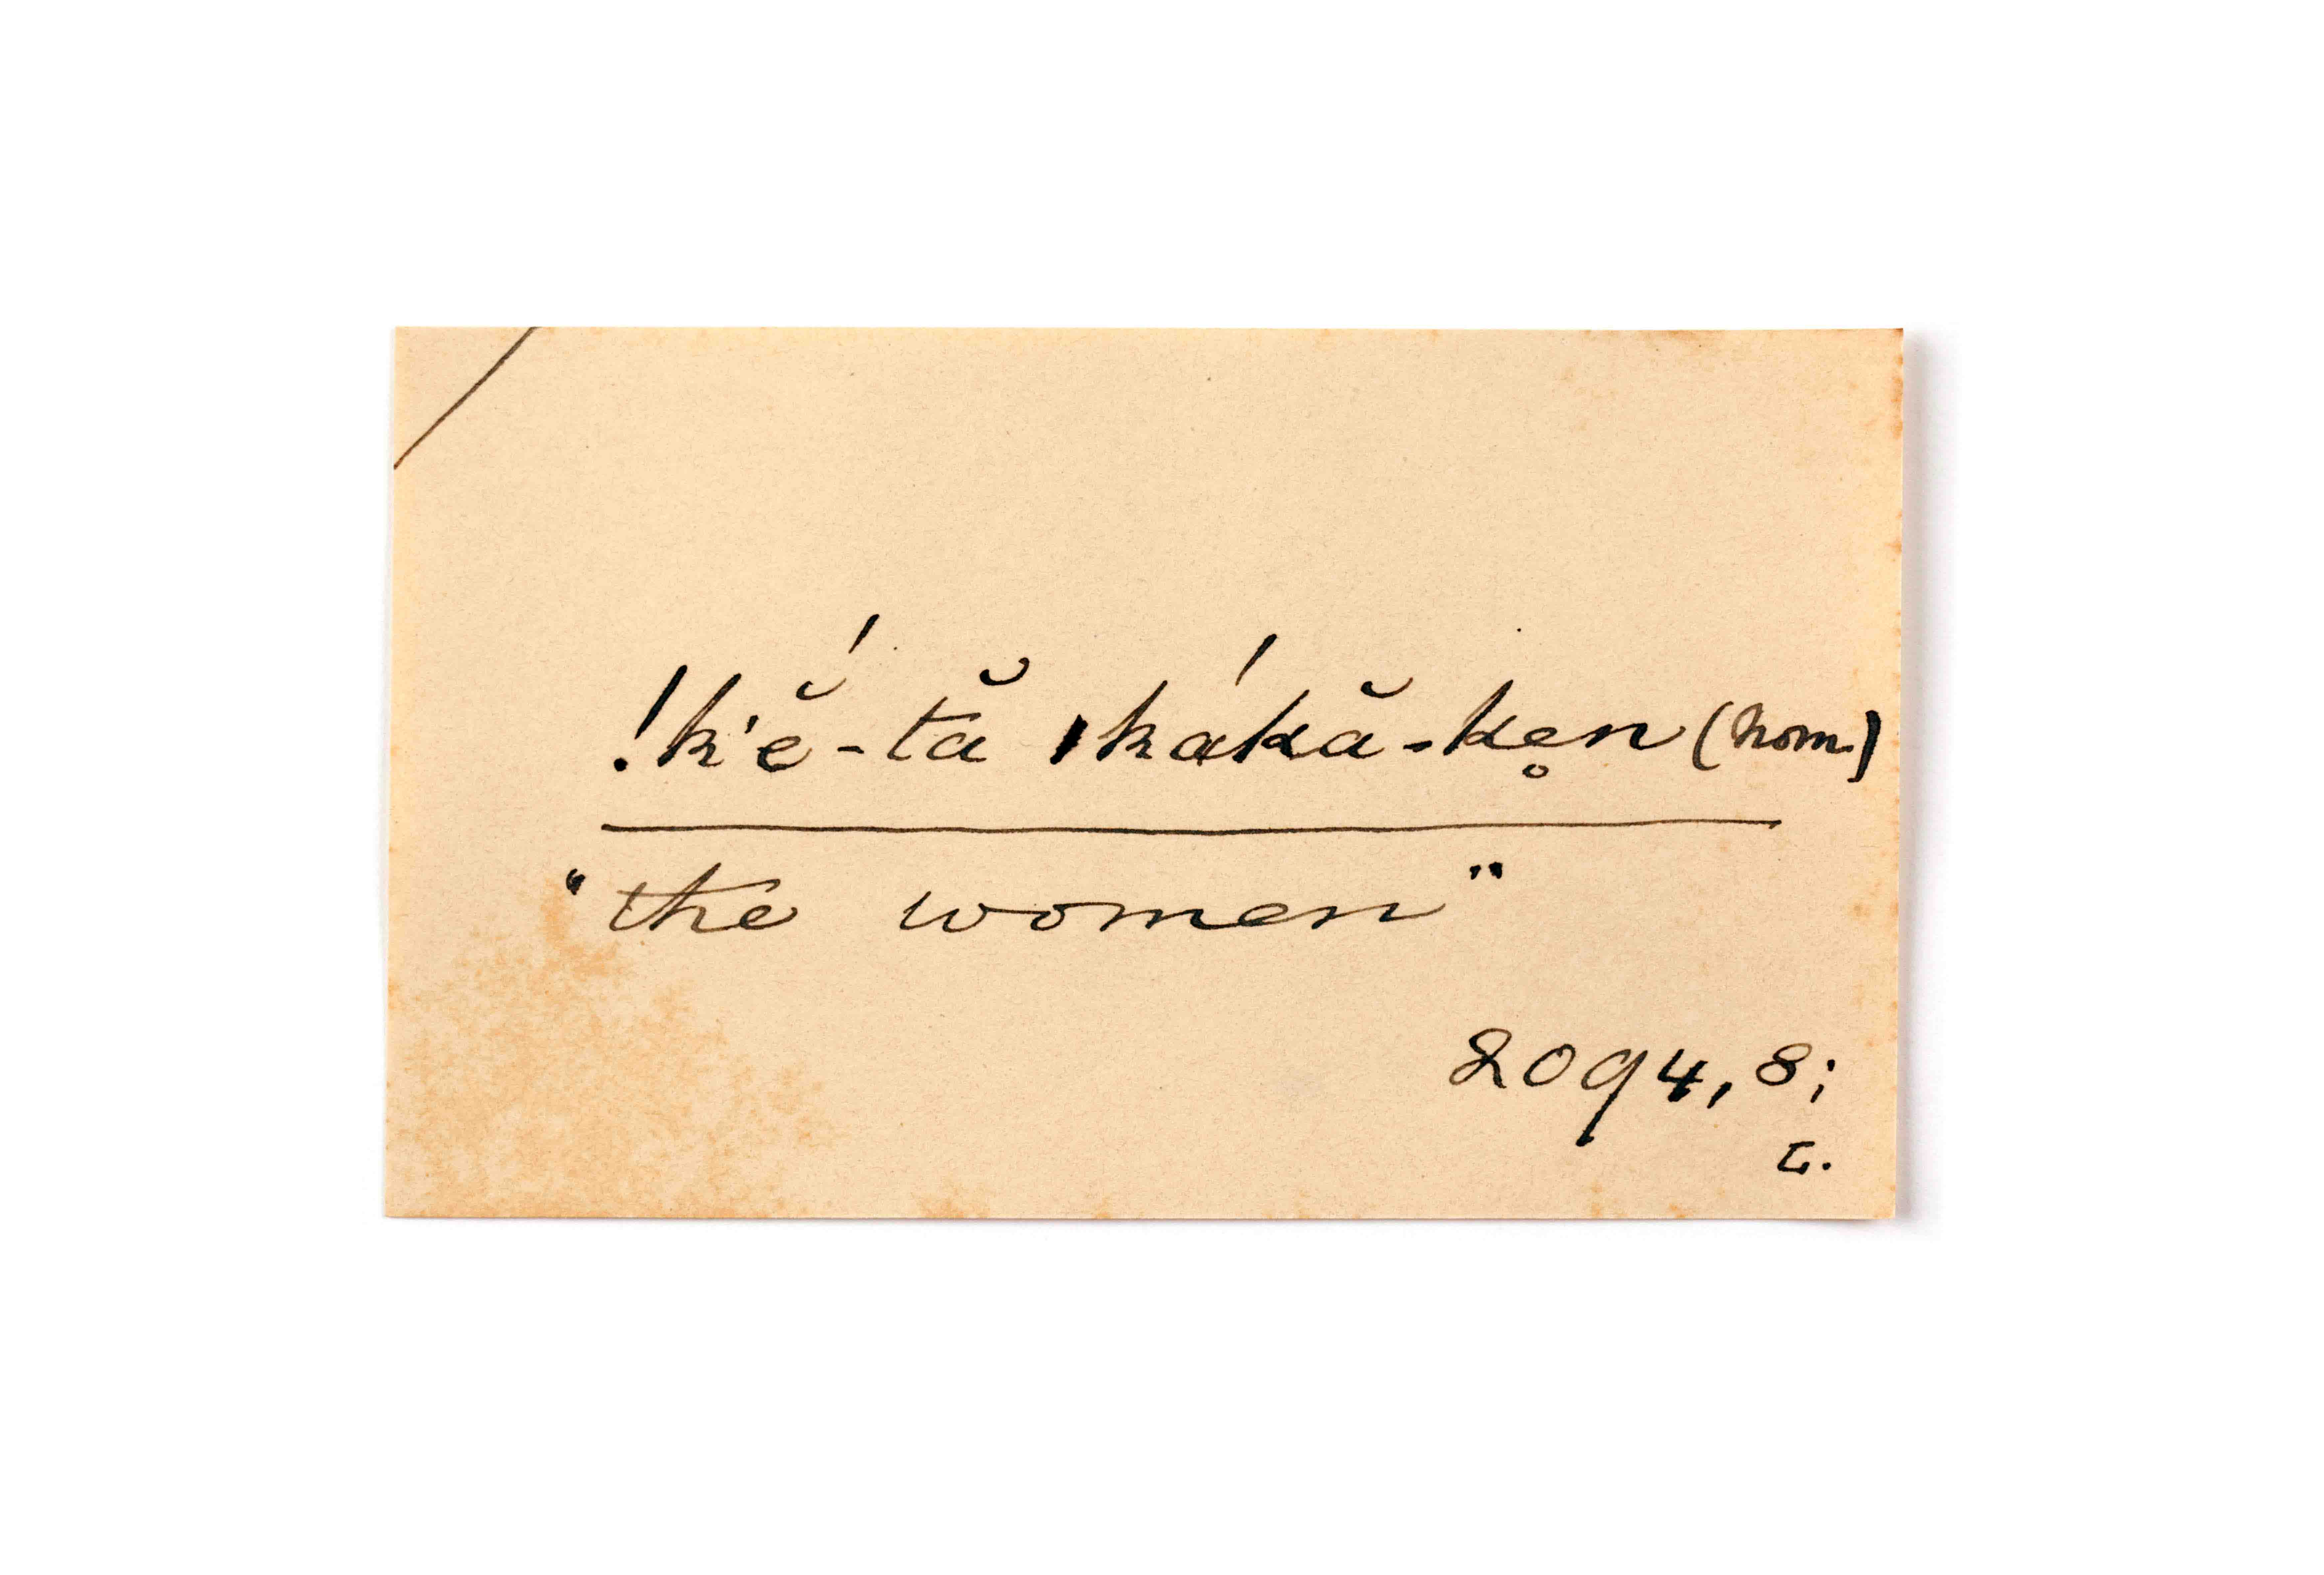 !k'ĕ́-tă ıkákă-ken̥ (nom.)
"the women"
2094, 8;
L.